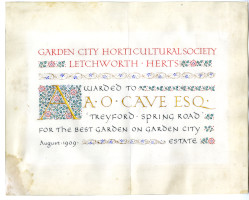 GARDEN CITY HORTICULTURAL SOCIETY
LETCHWORTH · HERTS
AWARDED TO
A·O·CAVE ESQ.
TREYFORD · SPRING ROAD
FOR THE BEST GARDEN ON GARDEN CITY
August · 1909 ESTATE